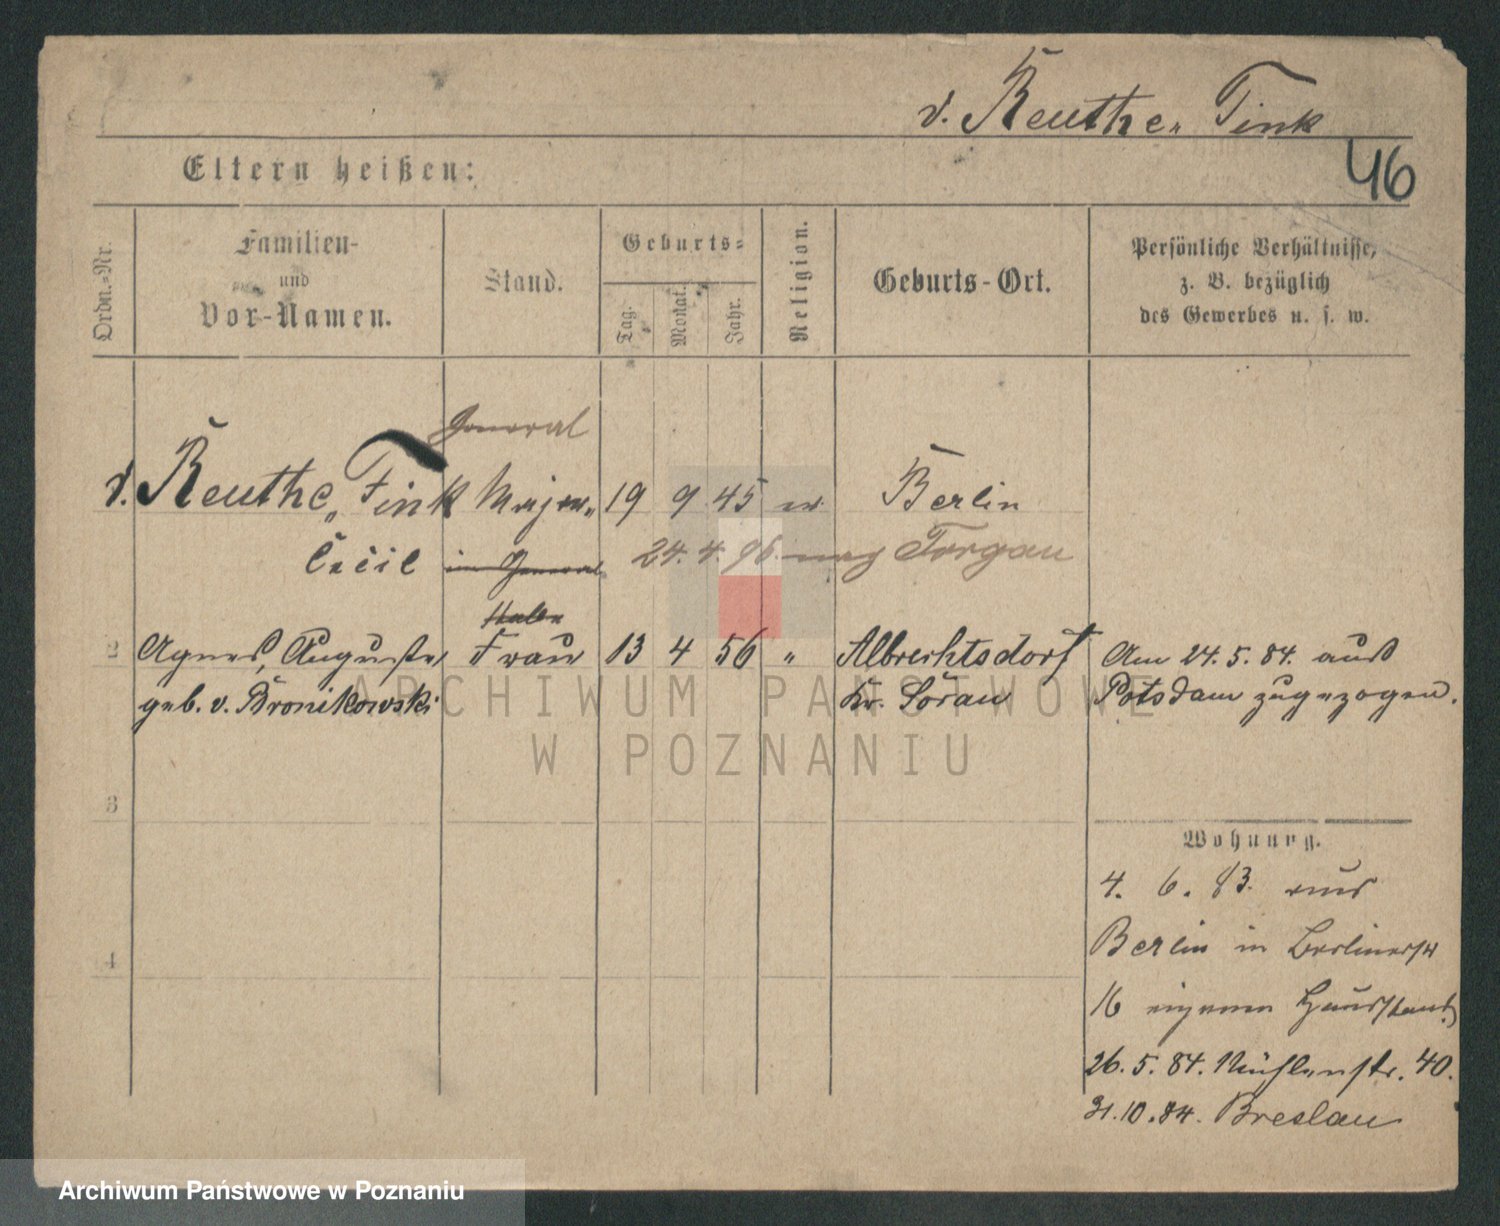 v. Reuthe-Fink
46
Eltern heißen:
Ordn.-Nr.
Familien-
und
Vor-Namen.
Stand.
Geburts-
Tag.
Monat.
Jahr.
Religion.
Geburts-Ort.
Persönliche Verhältnisse,
z. B. bezüglich
des Gewerbes u. s. w.
General
v. Reuthe-Fink Major 19 9 45 ev. Berlin
Cecil im General 24. 4. 96. nach Torgau
Stabe
2 Agnes, Auguste Frau 13 4 56 " Albrechtsdorf Am 24. 5. 84. aus
geb. v. Bronikowski Kr. Sorau Potsdam zugezogen.
3
4
Wohnung.
4. 6. 83. aus
Berlin in Berlinerstr
16 eigenen Hausstand
26. 5. 84. Mühlenstr. 40.
31. 10. 84. Breslau
ARCHIWUM PAŃSTWOWE
W POZNANIU
Archiwum Państwowe w Poznaniu